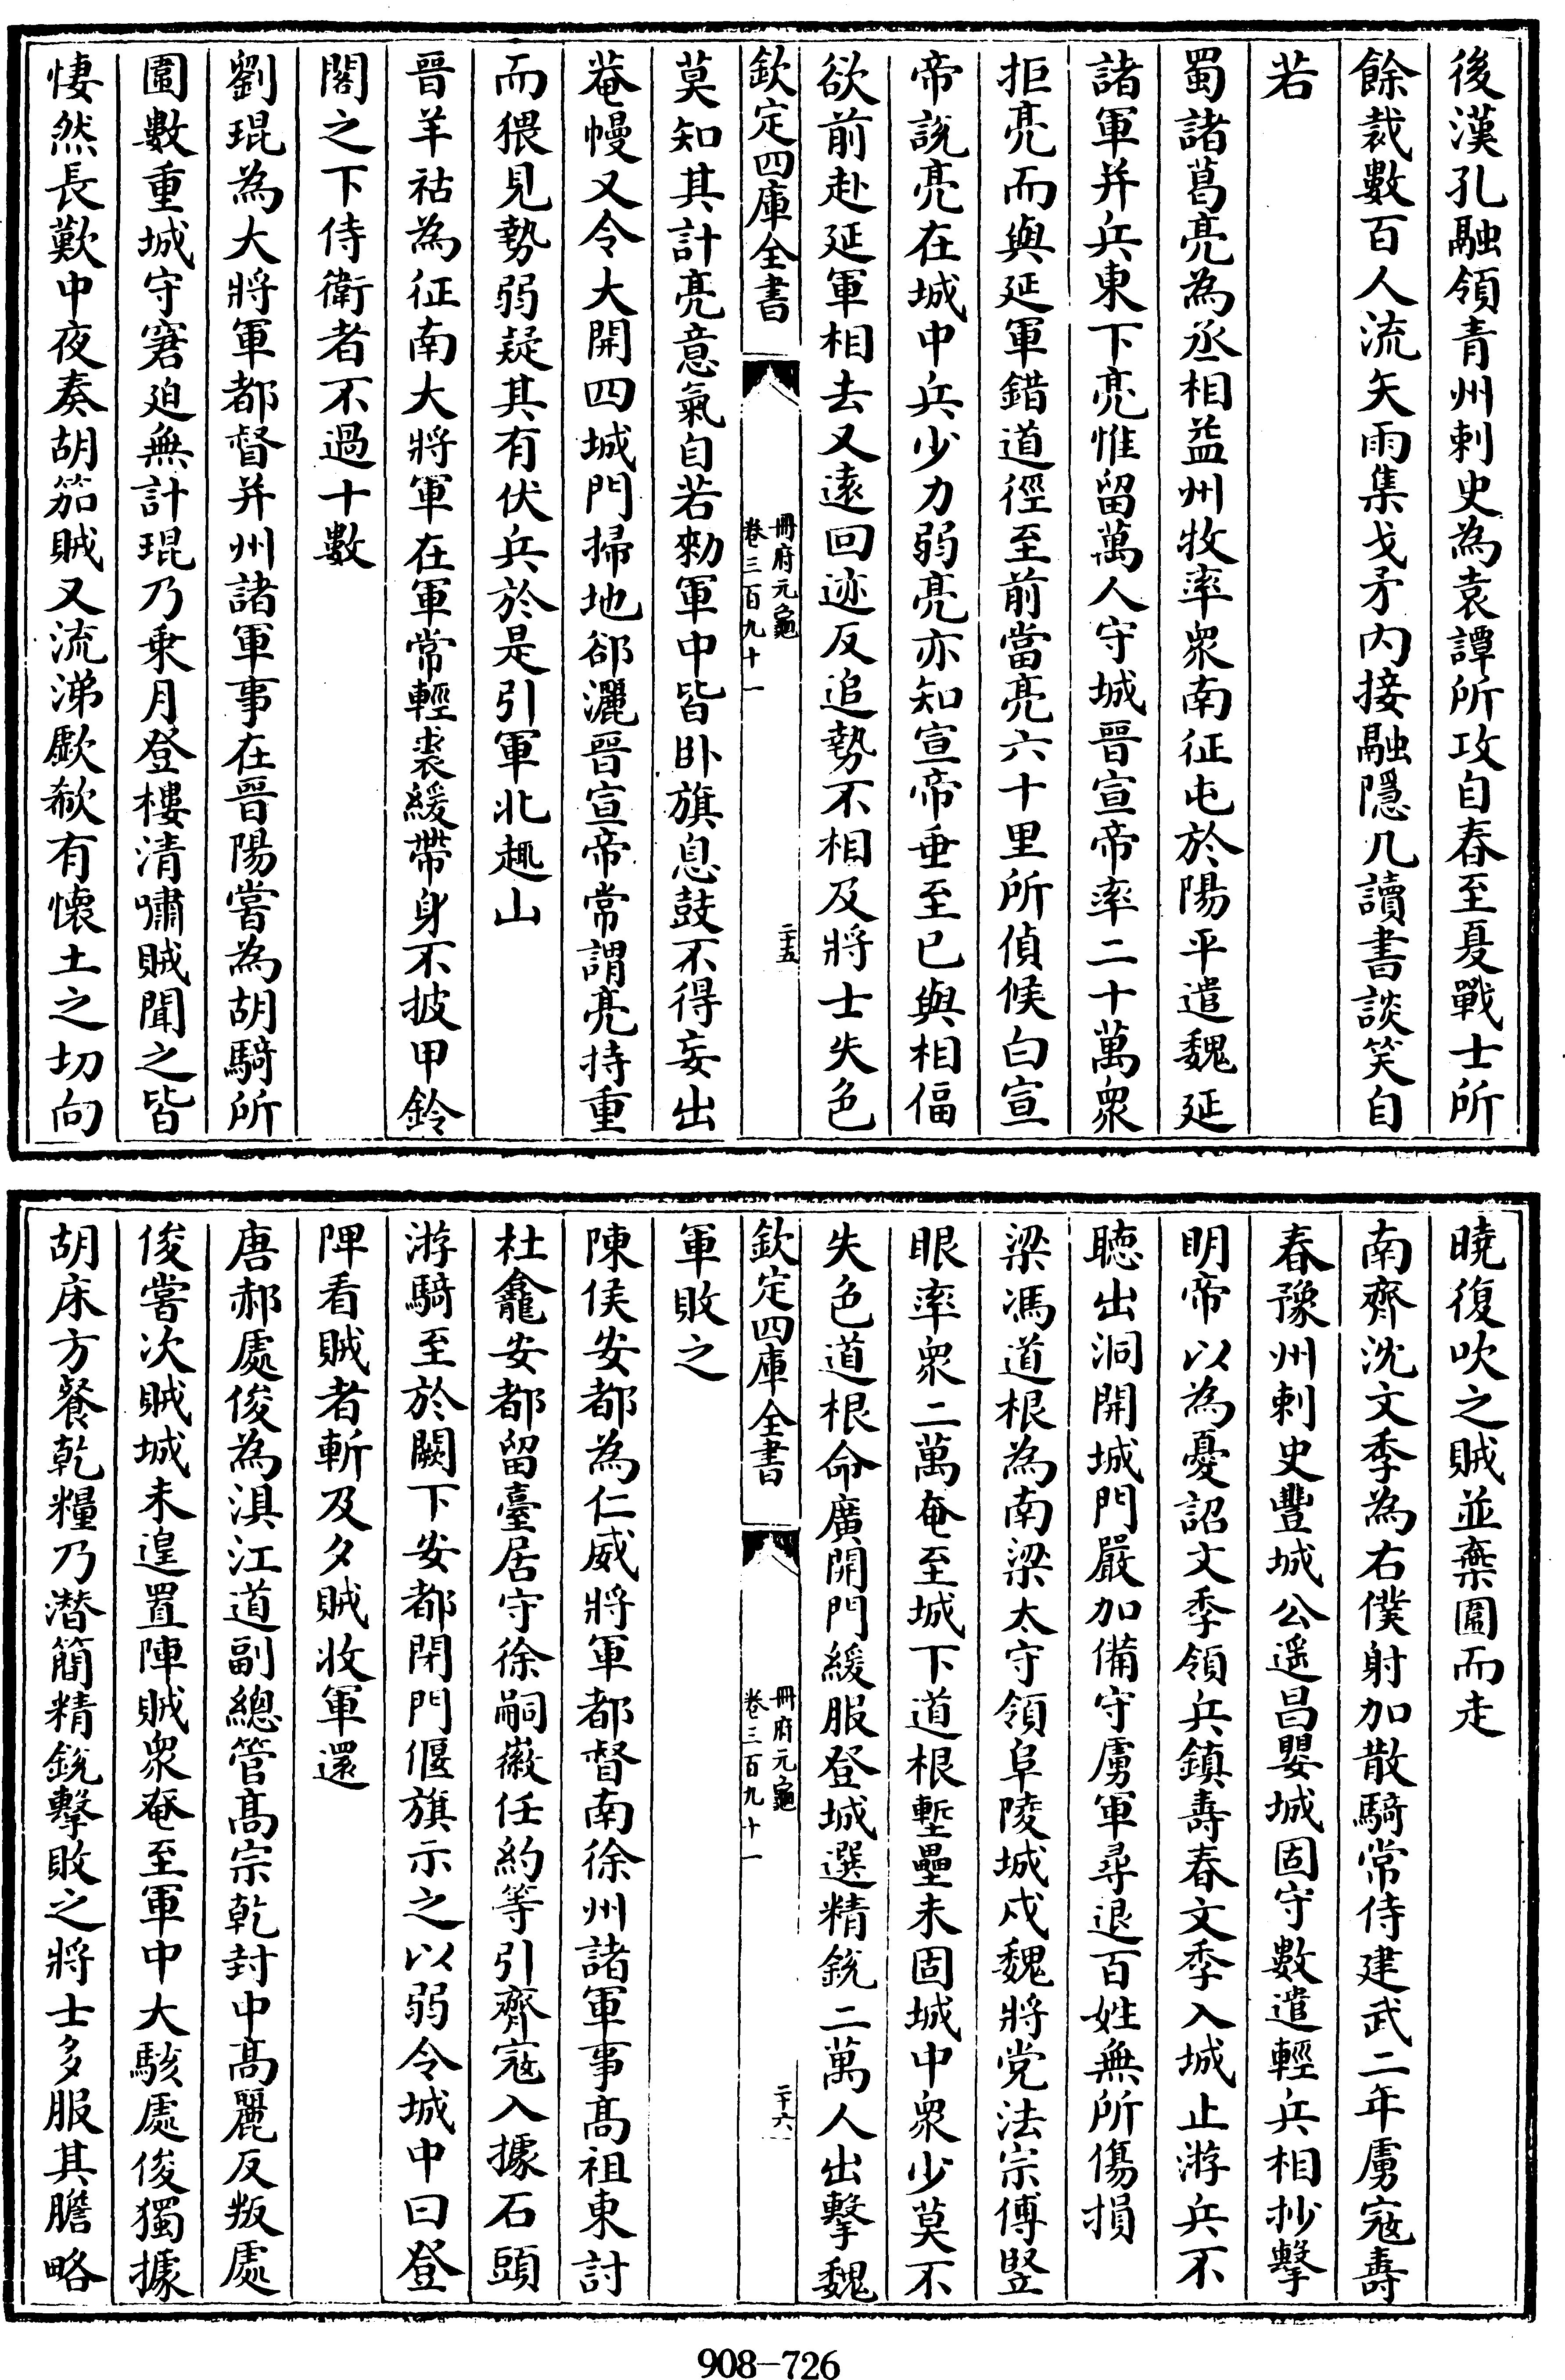 後漢孔融領青州刺史為袁譚所攻自春至夏戰士所
餘裁數百人流矢雨集戈矛内接融隱几讀書談笑自
若
蜀諸葛亮為丞相益州牧率衆南征屯於陽平遣魏延
諸軍并兵東下亮惟留萬人守城晉宣帝率二十萬衆
拒亮而與延軍錯道徑至前當亮六十里所偵候白宣
帝說亮在城中兵少力弱亮亦知宣帝垂至已與相偪
欲前赴延軍相去又遠回迹反追勢不相及將士失色
欽定四庫全書
冊府元龜
卷三百九十一
二十五
莫知其計亮意氣自若勑軍中皆卧旗息鼓不得妄出
菴幔又令大開四城門掃地郤灑晉宣帝常謂亮持重
而猥見勢弱疑其有伏兵於是引軍北趣山
晉羊祜為征南大將軍在軍常輕裘緩帶身不披甲鈴
閣之下侍衛者不過十數
劉琨為大將軍都督并州諸軍事在晉陽嘗為胡騎所
圍數重城守窘迫無計琨乃乘月登樓清嘯賊聞之皆
悽然長歎中夜奏胡笳賊又流涕歔欷有懷土之切向
曉復吹之賊並棄圍而走
南齊沈文季為右僕射加散騎常侍建武二年虜寇壽
春豫州刺史豐城公遥昌嬰城固守數遣輕兵相抄擊
明帝以為憂詔文季領兵鎮壽春文季入城止游兵不
聽出洞開城門嚴加備守虜軍尋退百姓無所傷損
梁馮道根為南梁太守領阜陵城戍魏將党法宗傅竪
眼率衆二萬奄至城下道根塹壘未固城中衆少莫不
失色道根命廣開門緩服登城選精銳二萬人出擊魏
欽定四庫全書
冊府元龜
卷三百九十一
二十六
軍敗之
陳侯安都為仁威將軍都督南徐州諸軍事髙祖東討
杜龕安都留臺居守徐嗣徽任約等引齊寇入據石頭
游騎至於闕下安都閉門偃旗示之以弱令城中曰登
陴看賊者斬及夕賊收軍還
唐郝處俊為浿江道副總管髙宗乾封中髙麗反叛處
俊嘗次賊城未遑置陣賊衆奄至軍中大駭處俊獨據
胡床方餐乾糧乃潛簡精銳擊敗之將士多服其膽略
908-726